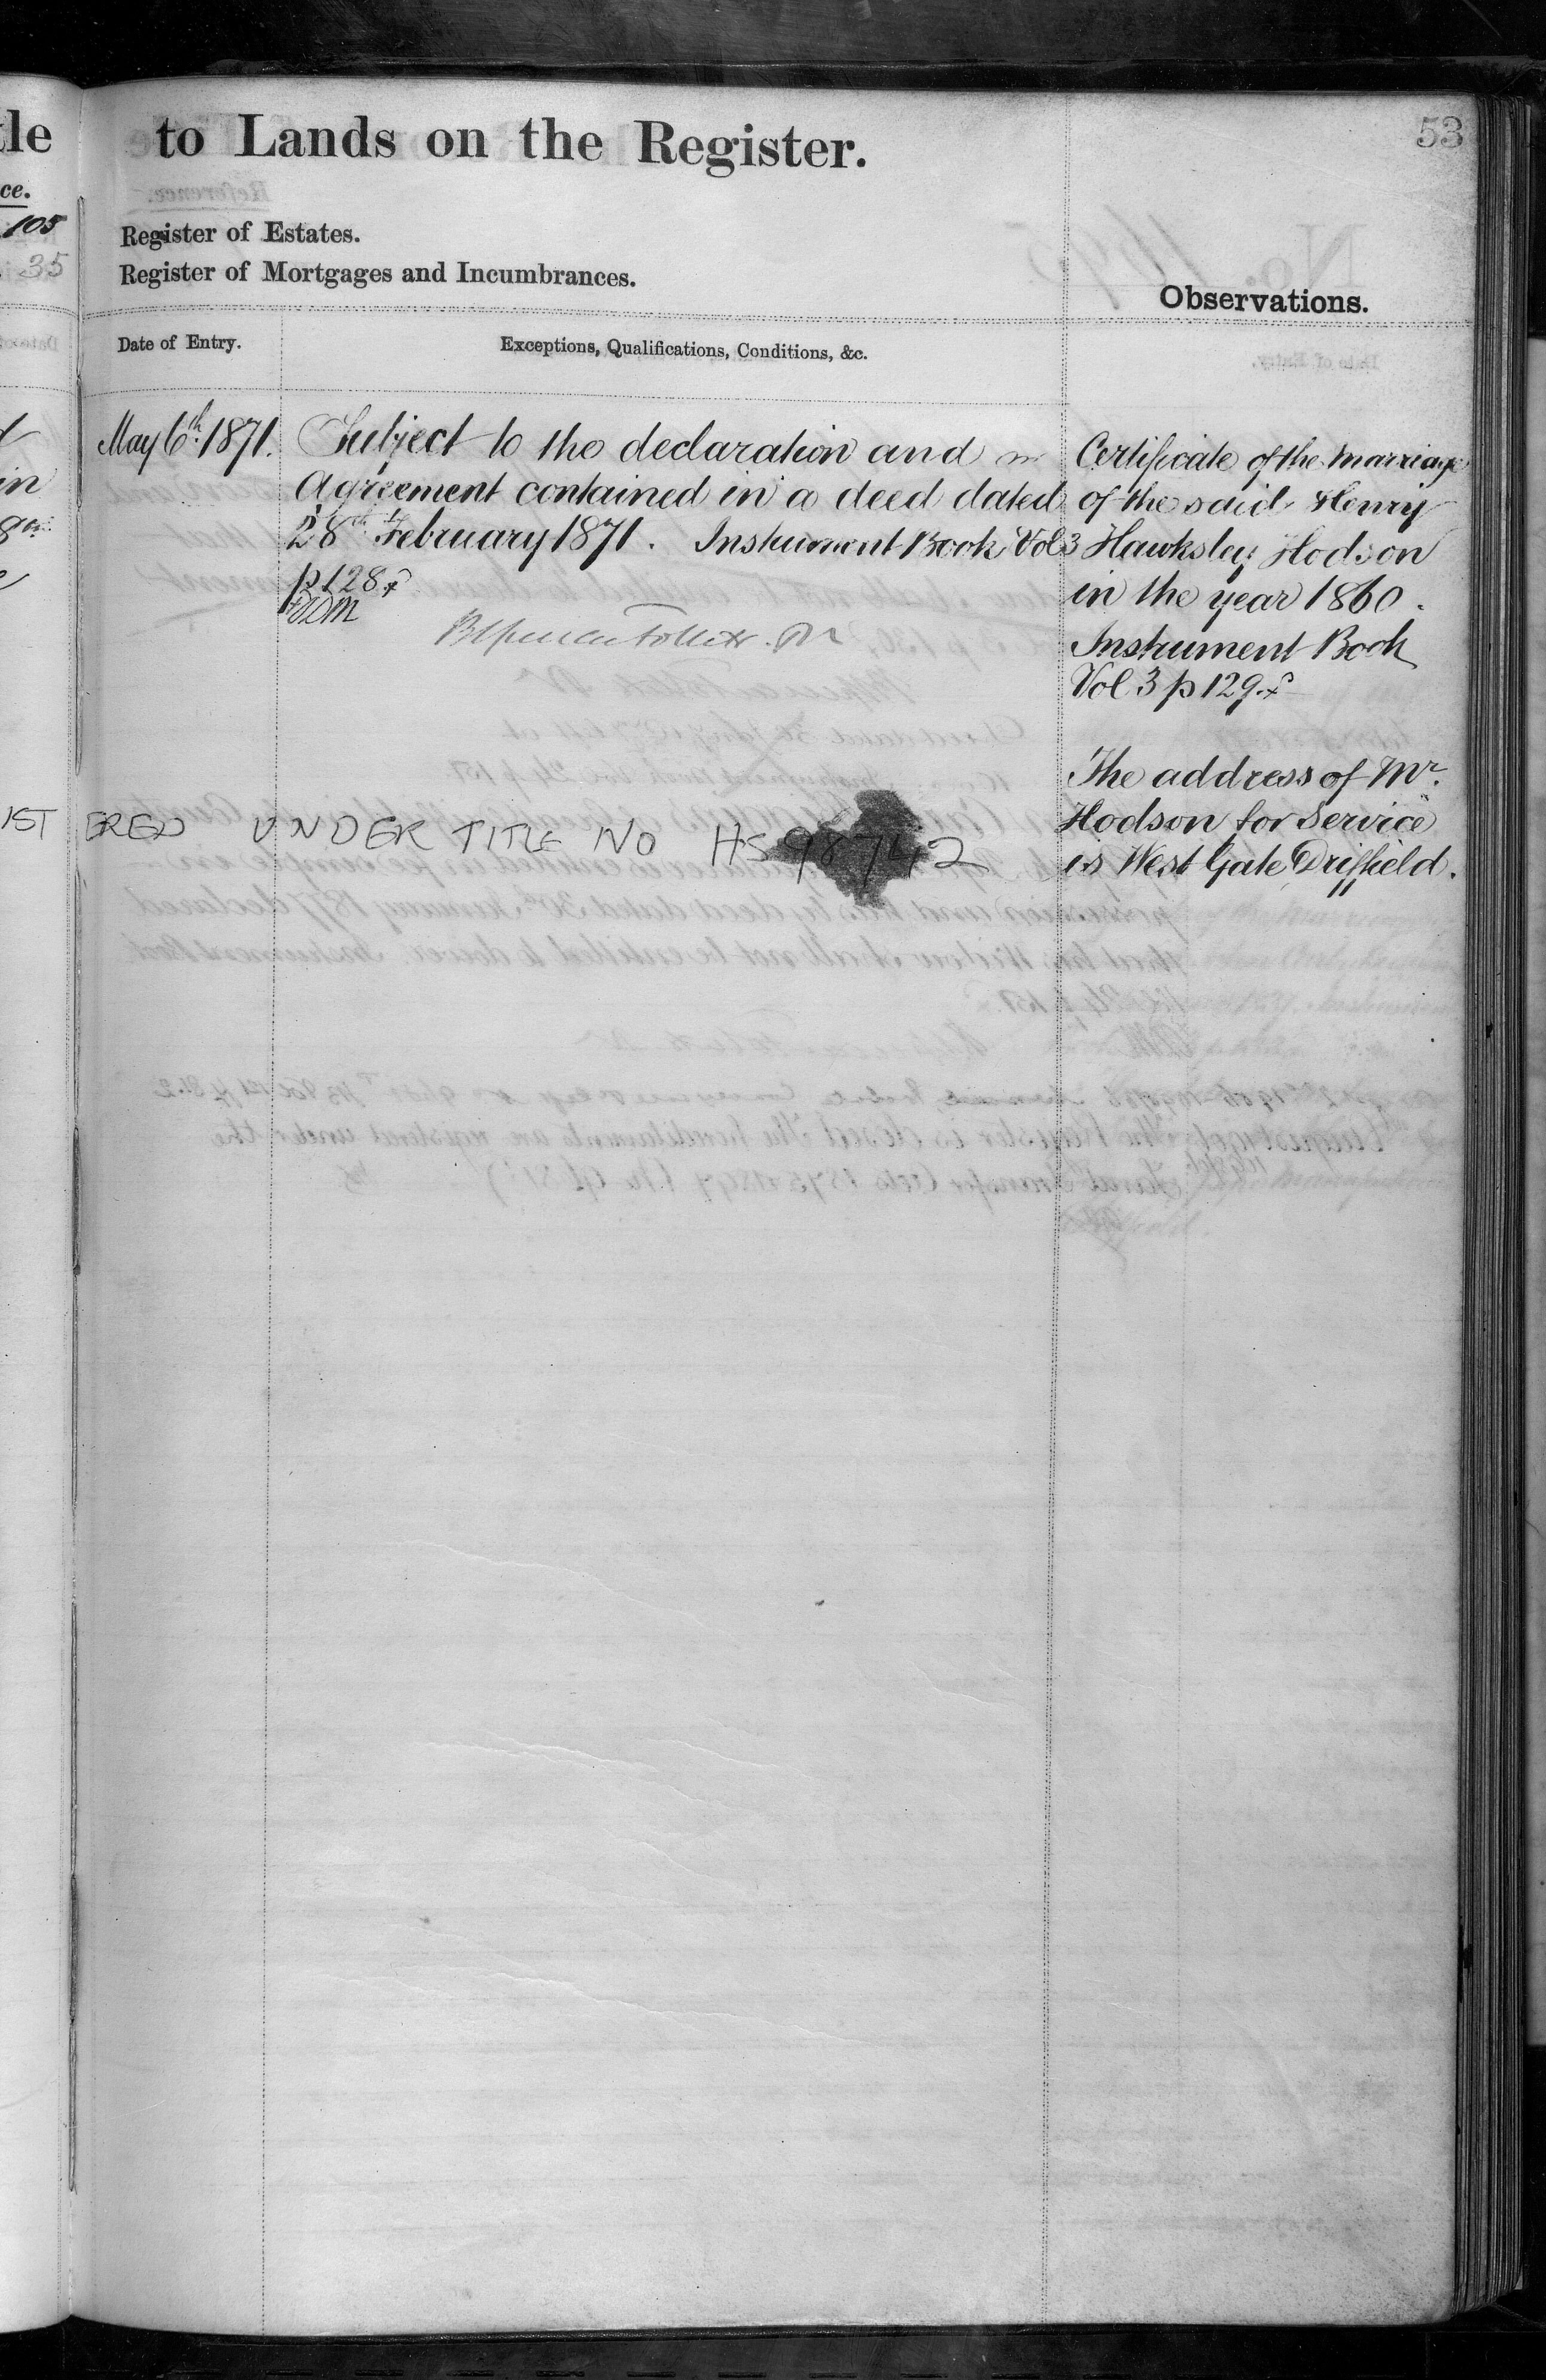 tle to Lands on the Register.
53
ce.
105
35
Register of Estates.
Register of Mortgages and Incumbrances.
Observations.
Date of Entry.
Exceptions, Qualifications, Conditions, &c.
May 6th 1871.
Subject to the declaration and
Agreement contained in a deed dated
28th February 1871. Instrument Book Vol 3
p 128.
Certificate of the Marriage
of the said Henry
Hawksley Hodson
in the year 1860.
Instrument Book
Vol 3 p 129.
The address of Mr.
Hodson for Service
is West Gate Driffield.
ISTERED UNDER TITLE NO HS 98742